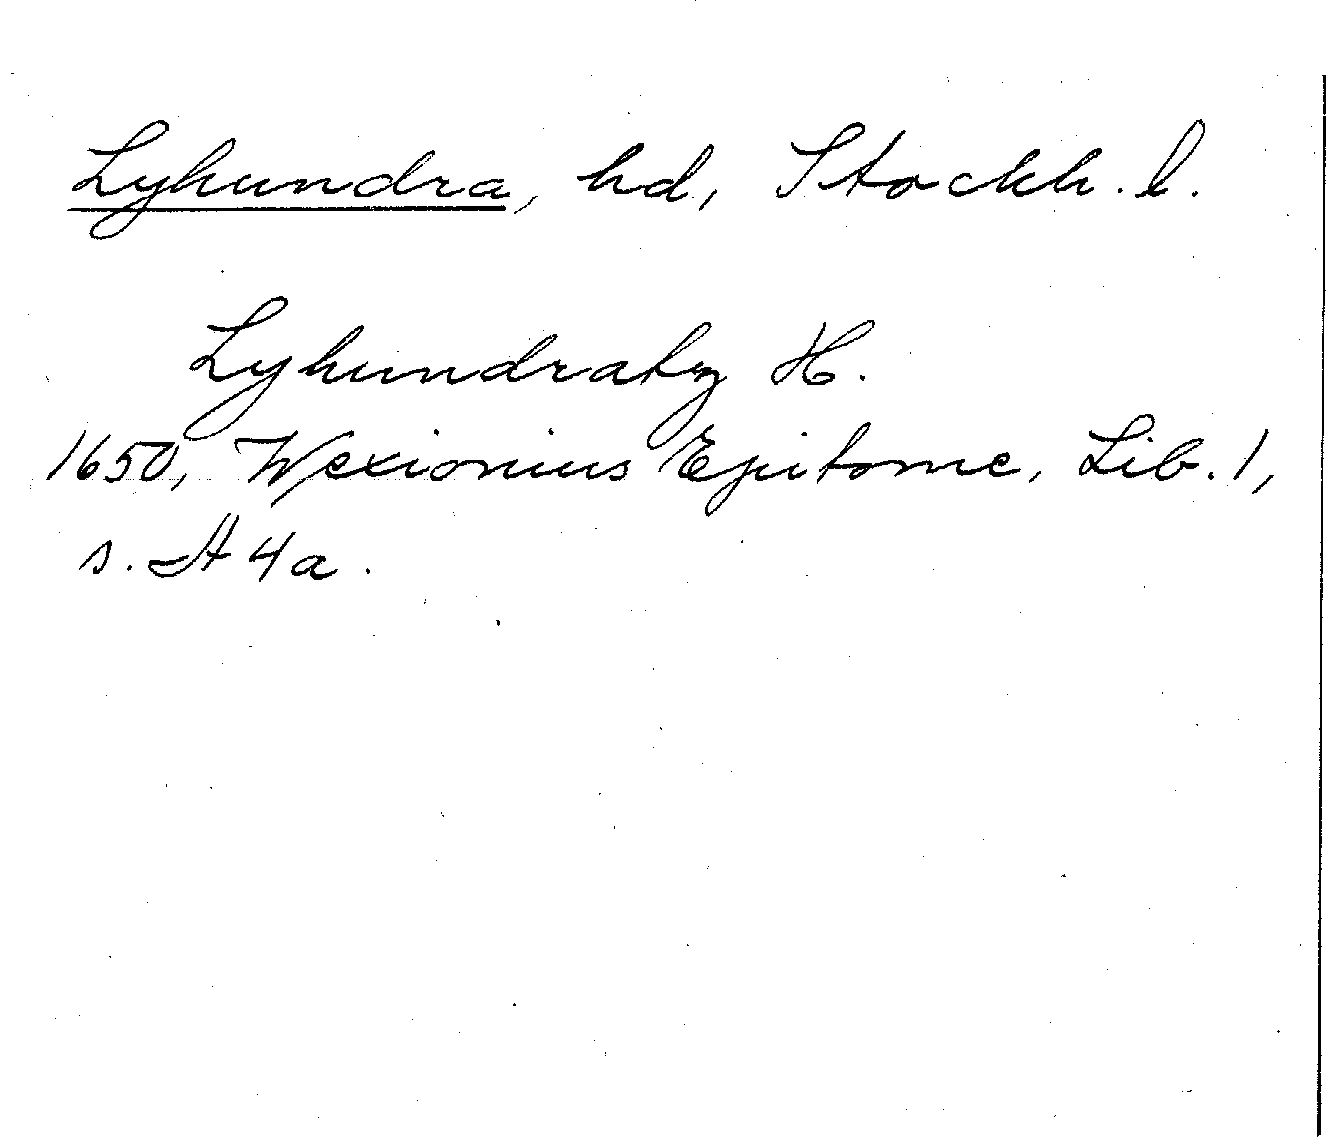 Lyhundra, hd, Stockh. l.
Lyhundratz H.
1650, Wexionius Epitome, Lib. 1,
s. A 4a.